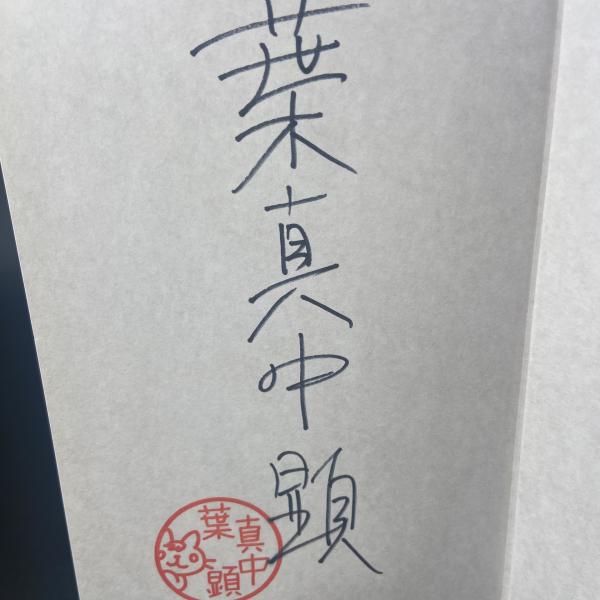 葉真中顕
葉真中顕